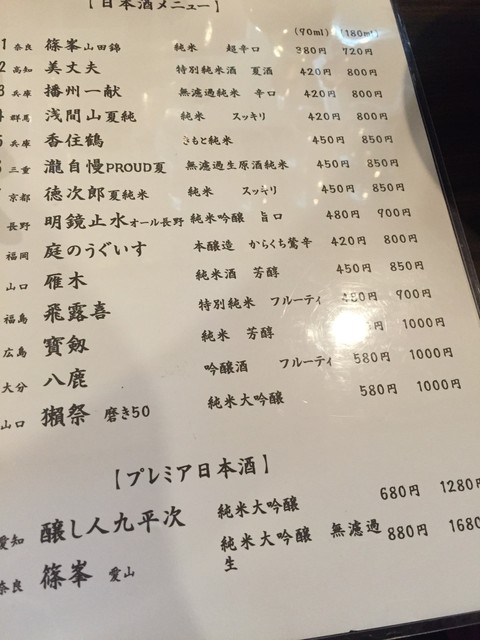 【日本酒メニュー】
(90ml) (180ml)
1 奈良 篠峯山田錦 純米 超辛口 380円 720円
2 高知 美丈夫 特別純米酒 夏酒 420円 800円
3 兵庫 播州一献 無濾過純米 辛口 420円 800円
群馬 浅間山夏純 純米 スッキリ 420円 800円
5 兵庫 香住鶴 きもと純米 450円 850円
三重 瀧自慢PROUD夏 無濾過生原酒純米 450円 850円
京都 徳次郎夏純米 純米 スッキリ 450円 850円
長野 明鏡止水オール長野 純米吟醸 旨口 480円 900円
福岡 庭のうぐいす 本醸造 からくち鶯辛 420円 800円
山口 雁木 純米酒 芳醇 450円 850円
福島 飛露喜 特別純米 フルーティ 480円 900円
広島 寳剱 純米 芳醇 円 1000円
大分 八鹿 吟醸酒 フルーティ 580円 1000円
山口 獺祭 磨き50 純米大吟醸 580円 1000円
【プレミア日本酒】
愛知 醸し人九平次 純米大吟醸 680円 1280円
奈良 篠峯 愛山 純米大吟醸 無濾過 880円 1680
生